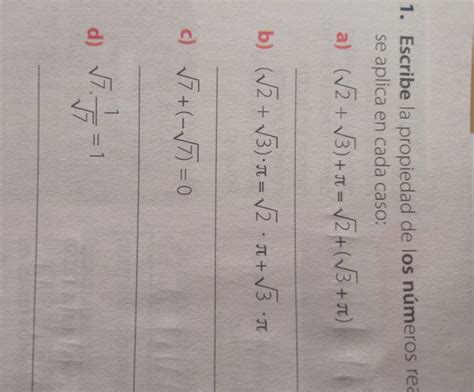 1. Escribe la propiedad de los números rea
se aplica en cada caso:
a) (√2 + √3) + π = √2 + (√3 + π)
b) (√2 + √3) · π = √2 · π + √3 · π
c) √7 + (−√7) = 0
d) √7 · 1/√7 = 1